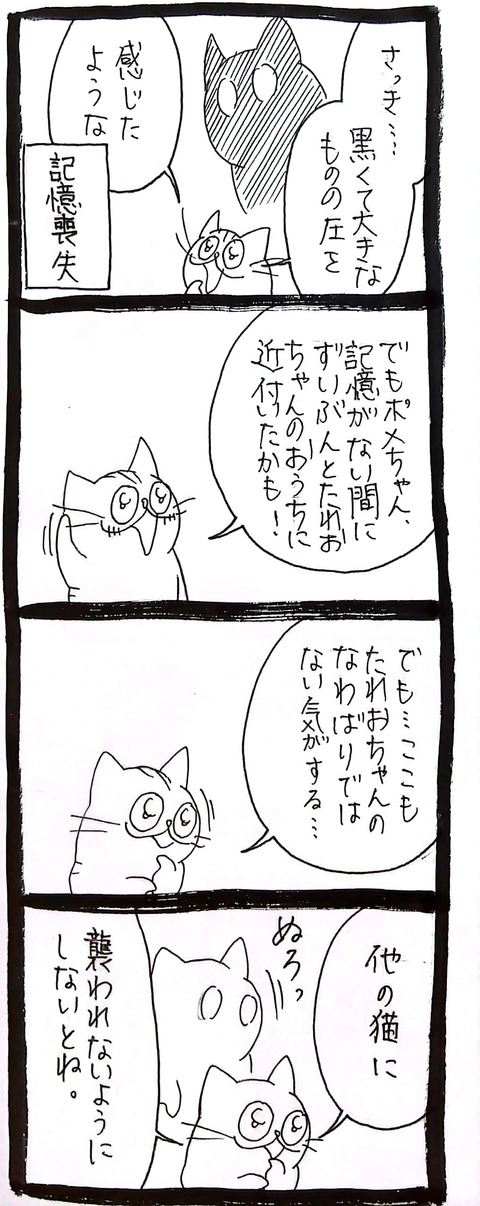 さっき…
黒くて大きな
ものの圧を
感じた
ような
記憶喪失
でもポメちゃん、
記憶がない間に
ずいぶんとたれお
ちゃんのおうちに
近付いたかも！
でも…ここも
たれおちゃんの
なわばりでは
ない気がする…
他の猫に
ぬろっ
襲われないように
しないとね。